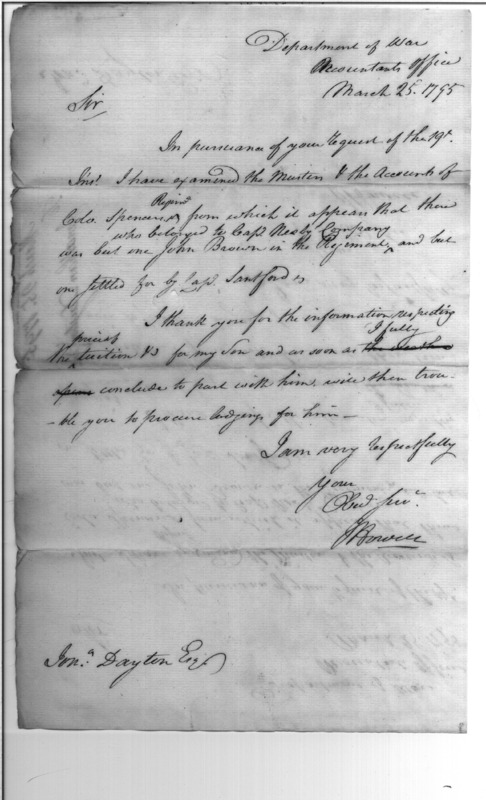 Department of War
Accountants Office
March 25. 1795
Sir
In pursuance of your request of the 19t.
Inst. I have examined the Musters & the Accounts of
Regimt
Colo. Spencers from which it appears that there
who belonged to Capt Company
was but one John Brown in the Regiment, and but
one settled for by Capt. Santford
I thank you for the information respecting
price of I fully
the tuition &c for my Son and as soon as
conclude to part with him, will then trou-
-ble you to procure lodgings for him -
I am very respectfully
Your
Obed Servt.
JHowell
Jona. Dayton Esqr.